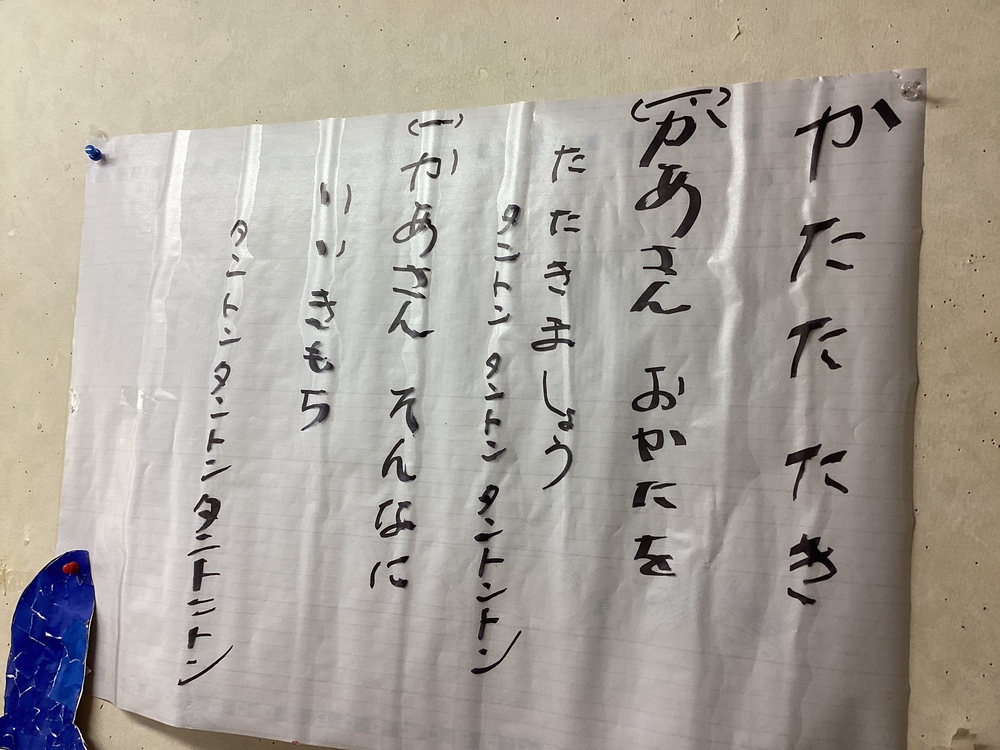 かたたたき
(一)かあさん おかたを
たたきましょう
タントン タントン タントントン
(一)かあさん そんなに
いいきもち
タントン タントン タントントン